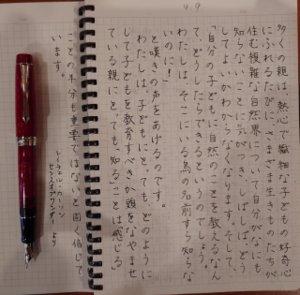 49
多くの親は、熱心で繊細な子どもの好奇心
にふれるたびに、さまざまな生きものたちが
住む複雑な自然界について自分がなにも
知らないことに気がつき、しばしば、どう
してよいかわからなくなります。そして、
「自分の子どもに自然のことを教えるなん
て、どうしたらできるというのでしょう。
わたしは、そこにいる鳥の名前すら知らな
いのに!」
と嘆きの声をあげるのです。
わたしは、子どもにとっても、どのように
して子どもを教育すべきか頭をなやませ
ている親にとっても、「知る」ことは「感じる」
ことの半分も重要ではないと固く信じて
います。
レイチェル・カーソン
センスオブワンダー より